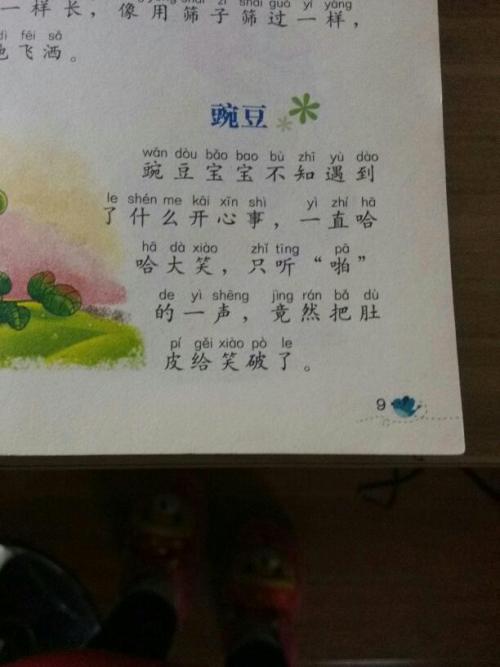 shāi zi shāi guò yí yàng
一样长，像用筛子筛过一样，
fēi sǎ
地飞洒。
豌豆
wān dòu bǎo bao bù zhī yù dào
豌豆宝宝不知遇到
le shén me kāi xīn shì yì zhí hā
了什么开心事，一直哈
hā dà xiào zhǐ tīng pā
哈大笑，只听“啪”
de yì shēng jìng rán bǎ dù
的一声，竟然把肚
pí gěi xiào pò le
皮给笑破了。
9